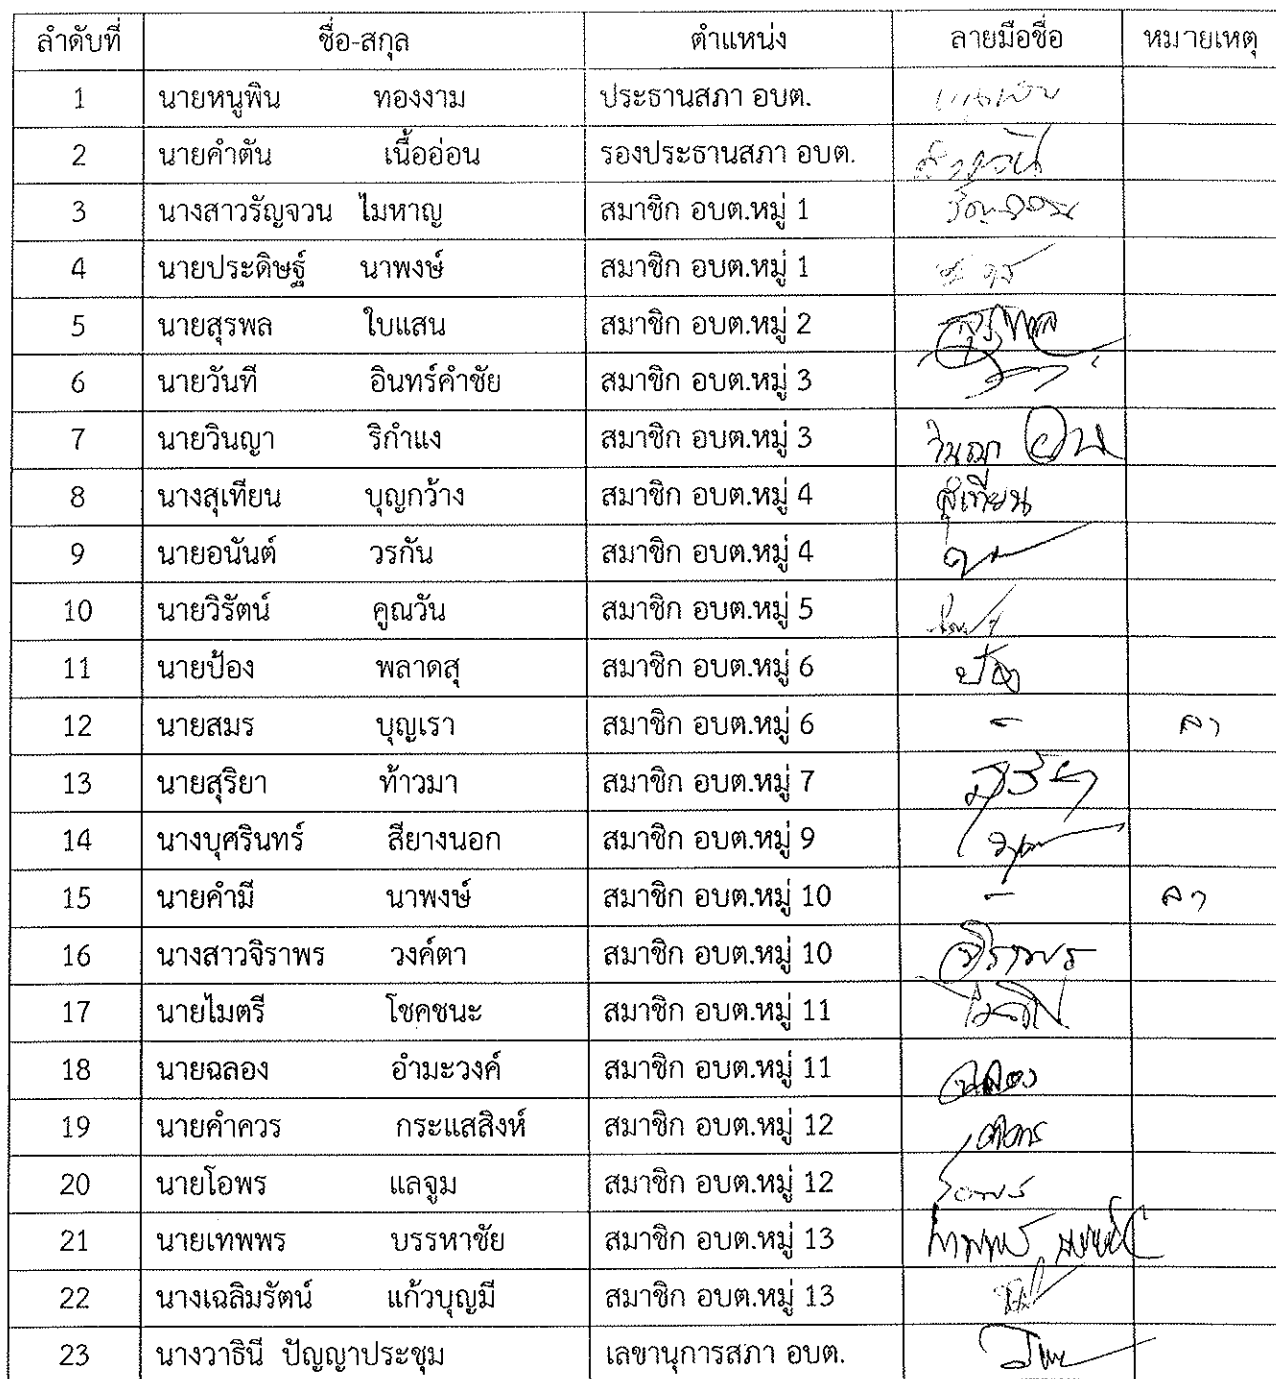 ลำดับที่ ชื่อ-สกุล ตำแหน่ง ลายมือชื่อ หมายเหตุ
1 นายหนูพิน ทองงาม ประธานสภา อบต.
2 นายคำตัน เนื้ออ่อน รองประธานสภา อบต.
3 นางสาวรัญจวน ไมหาญ สมาชิก อบต.หมู่ 1
4 นายประดิษฐ์ นาพงษ์ สมาชิก อบต.หมู่ 1
5 นายสุรพล ใบแสน สมาชิก อบต.หมู่ 2 สุรพล
6 นายวันที อินทร์คำชัย สมาชิก อบต.หมู่ 3
7 นายวินญา ริกำแง สมาชิก อบต.หมู่ 3 วินญา
8 นางสุเทียน บุญกว้าง สมาชิก อบต.หมู่ 4 สุเทียน
9 นายอนันต์ วรกัน สมาชิก อบต.หมู่ 4
10 นายวิรัตน์ คูณวัน สมาชิก อบต.หมู่ 5
11 นายป้อง พลาดสุ สมาชิก อบต.หมู่ 6 ป้อง
12 นายสมร บุญเรา สมาชิก อบต.หมู่ 6 - ลา
13 นายสุริยา ท้าวมา สมาชิก อบต.หมู่ 7
14 นางบุศรินทร์ สียางนอก สมาชิก อบต.หมู่ 9
15 นายคำมี นาพงษ์ สมาชิก อบต.หมู่ 10 - ลา
16 นางสาวจิราพร วงค์ตา สมาชิก อบต.หมู่ 10 จิราพร
17 นายไมตรี โชคชนะ สมาชิก อบต.หมู่ 11
18 นายฉลอง อำมะวงค์ สมาชิก อบต.หมู่ 11 ฉลอง
19 นายคำควร กระแสสิงห์ สมาชิก อบต.หมู่ 12
20 นายโอพร แลจูม สมาชิก อบต.หมู่ 12 โอพร
21 นายเทพพร บรรหาชัย สมาชิก อบต.หมู่ 13
22 นางเฉลิมรัตน์ แก้วบุญมี สมาชิก อบต.หมู่ 13
23 นางวาธินี ปัญญาประชุม เลขานุการสภา อบต.